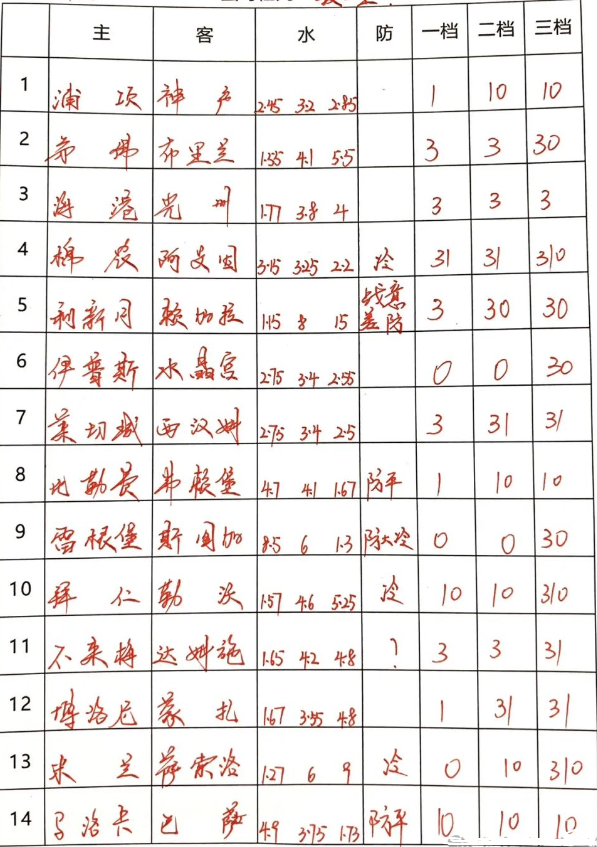 主 客 水 防 一档 二档 三档
1 浦项 神户 2.45 3.2 2.85 1 10 10
2 弗 布里兰 1.55 4.1 5.5 3 3 30
3 海港 光州 1.77 3.8 4 3 3 3
4 棉农 阿艾因 3.15 3.25 2.2 冷 31 31 310
5 利新月 赖加拉 1.15 8 15 战意差防 3 30 30
6 伊普斯 水晶宫 2.75 3.4 2.55 0 0 30
7 莱切城 西汉姆 2.75 3.4 2.5 3 31 31
8 比勒费 弗赖堡 4.7 4.1 1.67 防平 1 10 10
9 雷根堡 斯图加 8.5 6 1.3 防大冷 0 0 30
10 拜仁 勒沃 1.57 4.6 5.25 冷 10 10 310
11 不来梅 达姆施 1.65 4.2 4.8 ? 3 3 31
12 博洛尼 蒙扎 1.67 3.55 4.8 1 31 31
13 米兰 萨索洛 1.27 6 9 冷 0 10 310
14 马洛卡 巴萨 4.9 3.75 1.73 防平 10 10 10